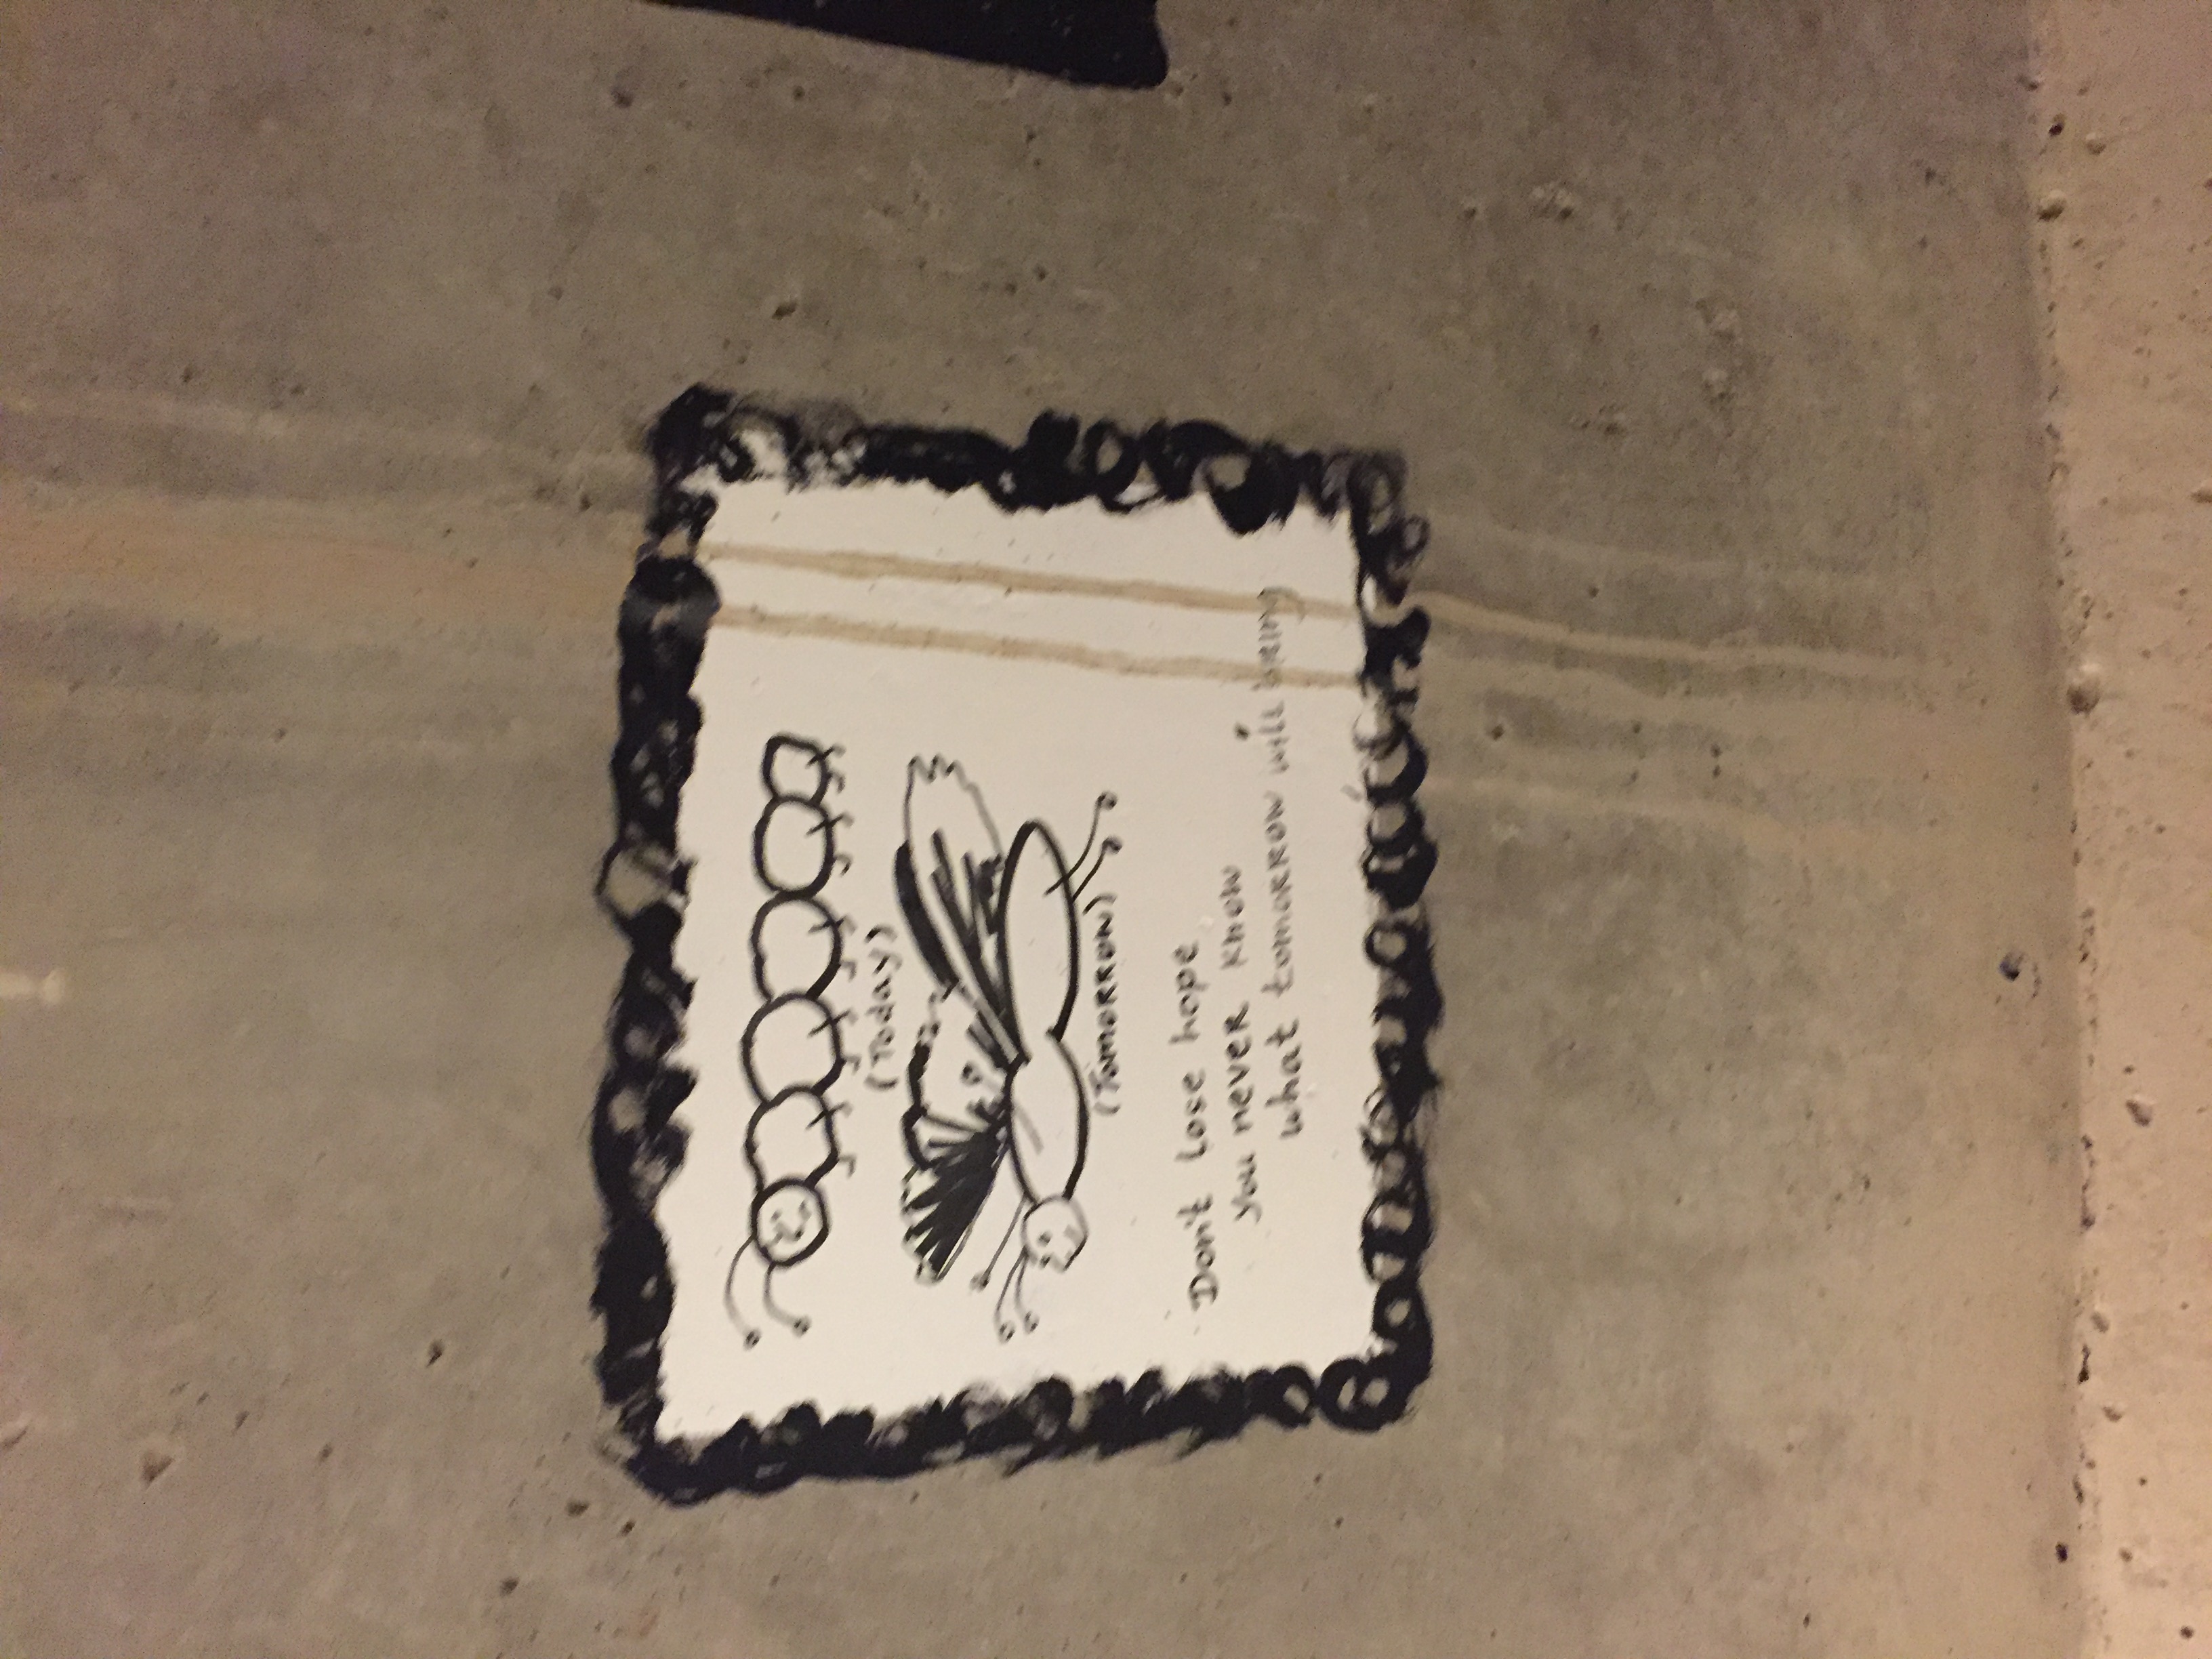 (Today)
(TOMORROW)
Don't lose hope
you never know
what tomorrow will bring